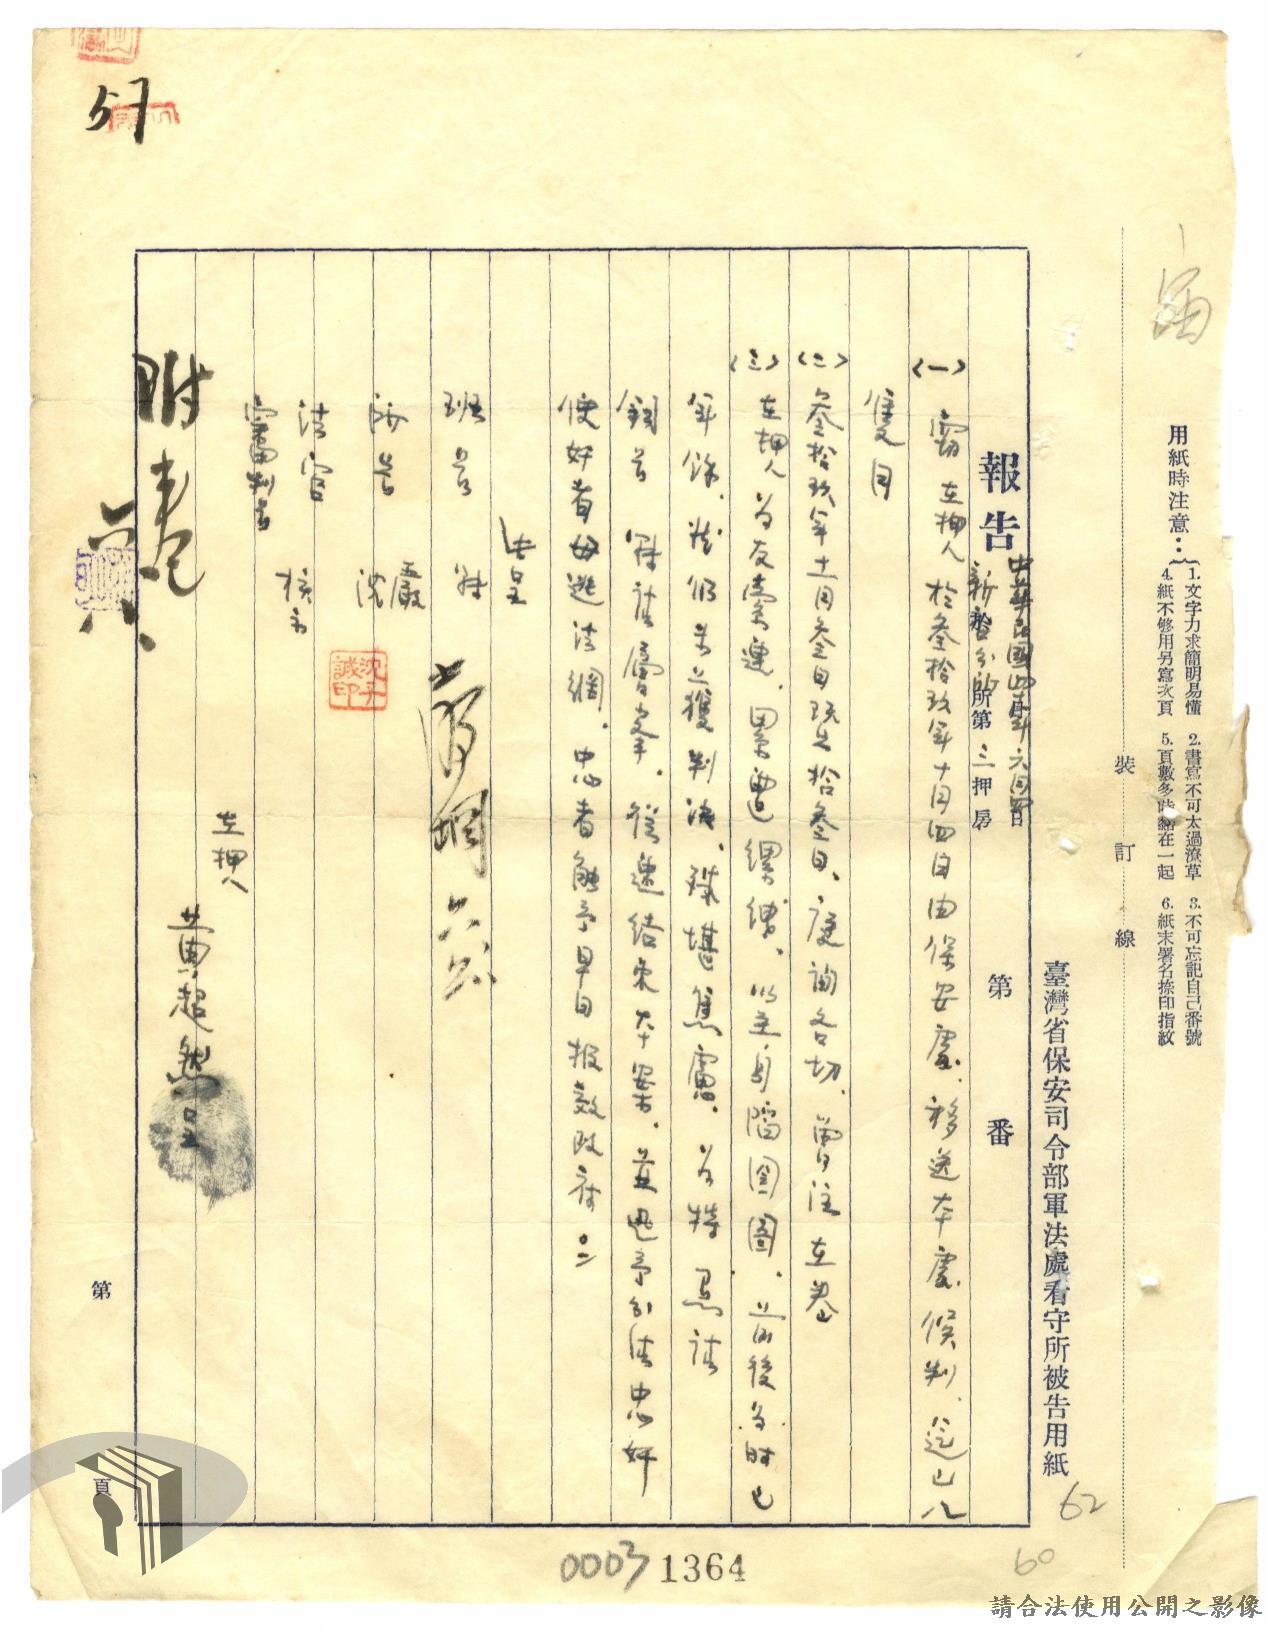 用紙時注意：
1. 文字力求簡明易懂 2. 書寫不可太過潦草 3. 不可忘記自己番號
4. 紙不够用另寫次頁 5. 頁數多時黏在一起 6. 紙末署名捺印指紋
裝訂線
臺灣省保安司令部軍法處看守所被告用紙
報告 中華民國四十年六月四日 第 番
所第三押房
〈一〉竊在押人於叁拾玖年十月四日由保安處，移送本處候判，迄已八
隻月
〈二〉叁拾玖年十二月叁日既出拾叁日，庭詢各切，曾注在卷
〈三〉在押人為友牽連，累遭縲絏，以至身陷囹圄，前後為時已
年餘，然仍未獲判決，殊堪焦慮，為特具請
鈞長 從速結束本案，並迅予分清忠奸
使奸者毋逃法網，忠者能予早日報效政府
此呈
班長
所長
嚴
沈
法官
審判官 核示
沈子誠印
在押人
黃超然呈
附卷
第 頁
57
62
60
00031364
請合法使用公開之影像